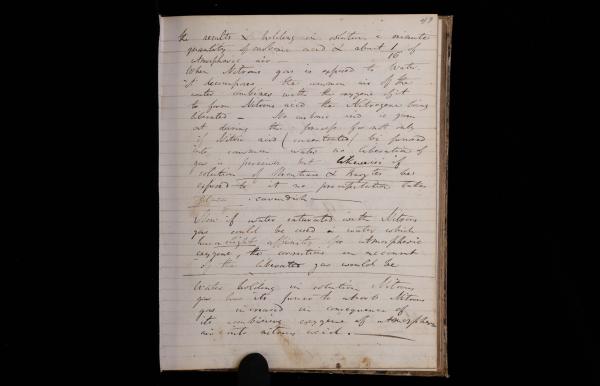 49
the results & holding in solution a minute
quantity of carbonic acid & about 1/16 of
Atmospheric air —
When Nitrous gas is exposed to Water
it decomposes the common air of the
water combines with the oxygene of it
to form Nitrous acid the Nitrogene being
liberated — No carbonic acid is given
out during this process for not only
if Nitric acid (concentrated) be poured
into common water no liberation of
gas is perceived but likewise if
solution of Strontian & Barytes be
exposed to it no precipitation takes
place. Cavendish —
Now if water saturated with Nitrous
gas could be used a water which
has a slight affinity for Atmospheric
oxygene, the corrections on account
of the liberated gas would be
Water holding in solution Nitrous
gas has its power to absorb Nitrous
gas increased in consequence of
its combining oxygene of atmospheric
air into nitrous acid. —